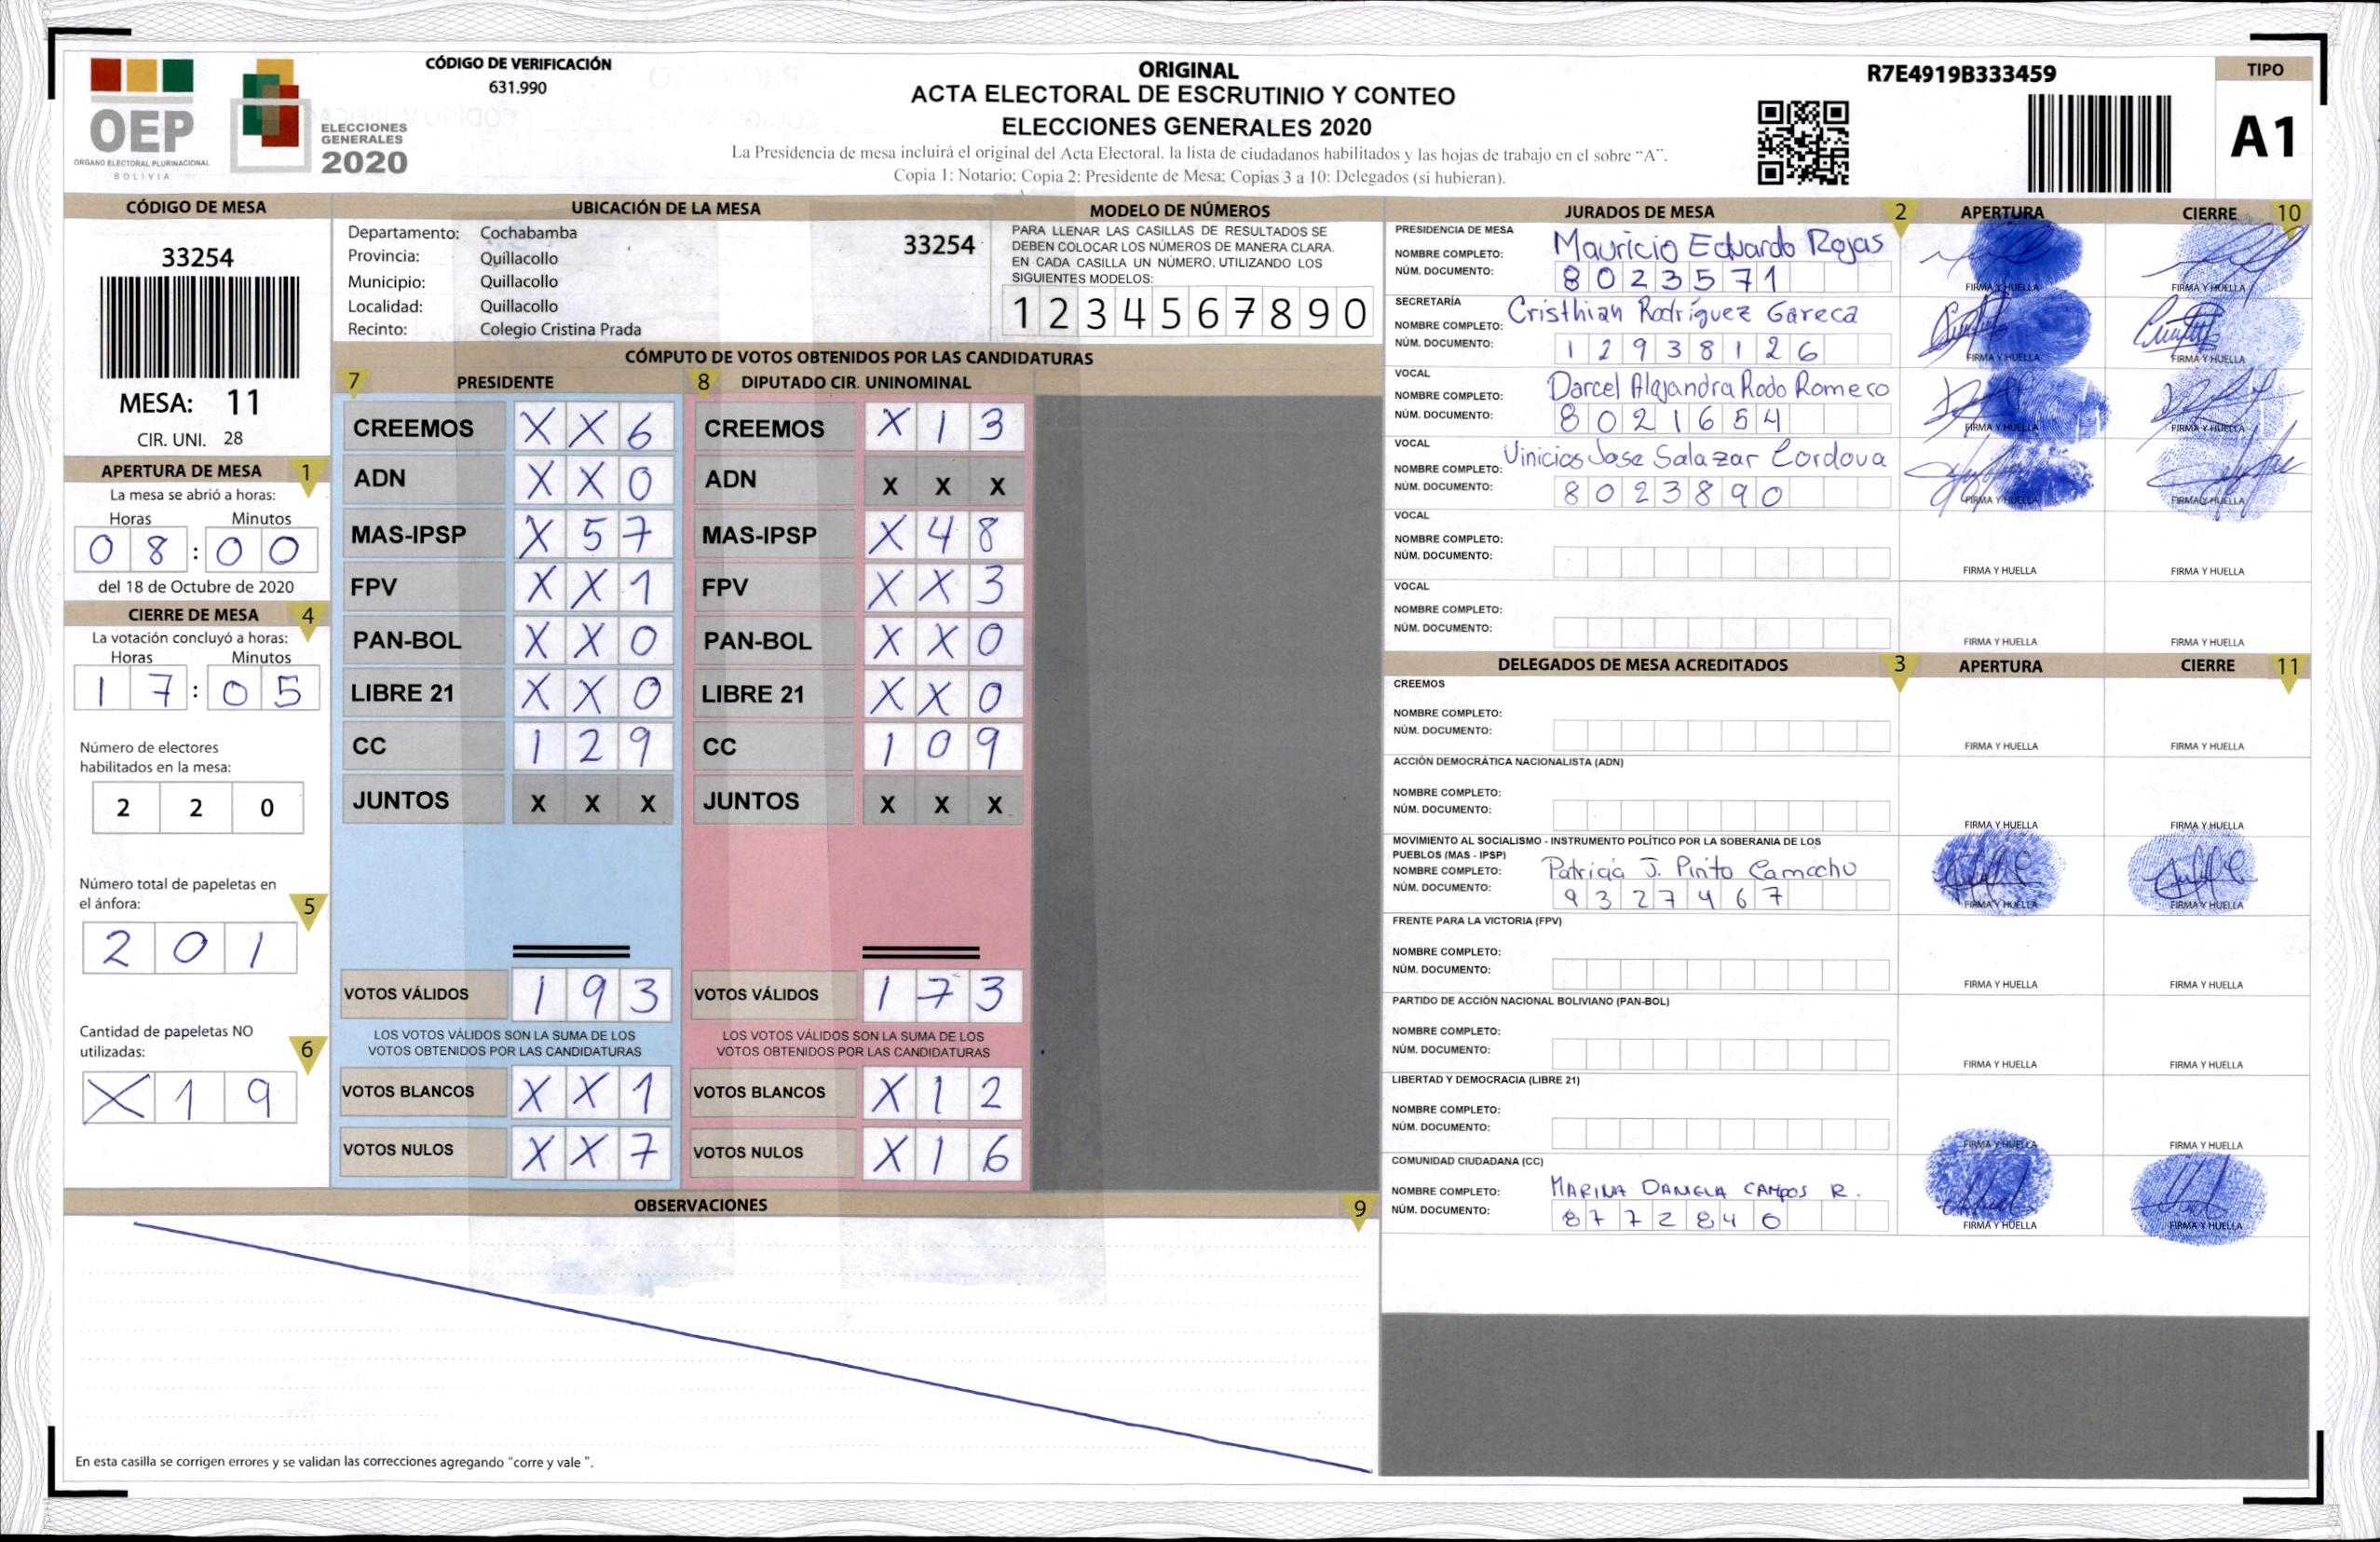 OEP
ORGANO ELECTORAL PLURINACIONAL
BOLIVIA
ELECCIONES
GENERALES
2020
CÓDIGO DE VERIFICACIÓN
631.990
ORIGINAL
ACTA ELECTORAL DE ESCRUTINIO Y CONTEO
ELECCIONES GENERALES 2020
La Presidencia de mesa incluirá el original del Acta Electoral, la lista de ciudadanos habilitados y las hojas de trabajo en el sobre "A".
Copia 1: Notario; Copia 2: Presidente de Mesa; Copias 3 a 10: Delegados (si hubieran).
R7E4919B333459
TIPO
A1
CÓDIGO DE MESA
33254
MESA: 11
CIR. UNI. 28
APERTURA DE MESA 1
La mesa se abrió a horas:
Horas Minutos
0 8 : 0 0
del 18 de Octubre de 2020
CIERRE DE MESA 4
La votación concluyó a horas:
Horas Minutos
1 7 : 0 5
Número de electores
habilitados en la mesa:
2 2 0
Número total de papeletas en
el ánfora: 5
2 0 1
Cantidad de papeletas NO
utilizadas: 6
X 1 9
UBICACIÓN DE LA MESA
Departamento: Cochabamba
Provincia: Quillacollo
Municipio: Quillacollo
Localidad: Quillacollo
Recinto: Colegio Cristina Prada
33254
MODELO DE NÚMEROS
PARA LLENAR LAS CASILLAS DE RESULTADOS SE
DEBEN COLOCAR LOS NÚMEROS DE MANERA CLARA.
EN CADA CASILLA UN NÚMERO, UTILIZANDO LOS
SIGUIENTES MODELOS:
1 2 3 4 5 6 7 8 9 0
CÓMPUTO DE VOTOS OBTENIDOS POR LAS CANDIDATURAS
7 PRESIDENTE 8 DIPUTADO CIR. UNINOMINAL
CREEMOS X X 6 CREEMOS X 1 3
ADN X X 0 ADN X X X
MAS-IPSP X 5 7 MAS-IPSP X 4 8
FPV X X 1 FPV X X 3
PAN-BOL X X 0 PAN-BOL X X 0
LIBRE 21 X X 0 LIBRE 21 X X 0
CC 1 2 9 CC 1 0 9
JUNTOS X X X JUNTOS X X X
VOTOS VÁLIDOS 1 9 3 VOTOS VÁLIDOS 1 7 3
LOS VOTOS VÁLIDOS SON LA SUMA DE LOS LOS VOTOS VÁLIDOS SON LA SUMA DE LOS
VOTOS OBTENIDOS POR LAS CANDIDATURAS VOTOS OBTENIDOS POR LAS CANDIDATURAS
VOTOS BLANCOS X X 1 VOTOS BLANCOS X 1 2
VOTOS NULOS X X 7 VOTOS NULOS X 1 6
OBSERVACIONES 9
En esta casilla se corrigen errores y se validan las correcciones agregando "corre y vale ".
JURADOS DE MESA 2 APERTURA CIERRE 10
PRESIDENCIA DE MESA
NOMBRE COMPLETO: Mauricio Eduardo Rojas
NÚM. DOCUMENTO: 8 0 2 3 5 7 1
FIRMA Y HUELLA FIRMA Y HUELLA
SECRETARÍA
NOMBRE COMPLETO: Cristhian Rodríguez Gareca
NÚM. DOCUMENTO: 1 2 9 3 8 1 2 6
FIRMA Y HUELLA FIRMA Y HUELLA
VOCAL
NOMBRE COMPLETO: Darcel Alejandra Rodo Romero
NÚM. DOCUMENTO: 8 0 2 1 6 5 4
FIRMA Y HUELLA FIRMA Y HUELLA
VOCAL
NOMBRE COMPLETO: Vinicios Jose Salazar Cordova
NÚM. DOCUMENTO: 8 0 2 3 8 9 0
FIRMA Y HUELLA FIRMA Y HUELLA
VOCAL
NOMBRE COMPLETO:
NÚM. DOCUMENTO:
FIRMA Y HUELLA FIRMA Y HUELLA
VOCAL
NOMBRE COMPLETO:
NÚM. DOCUMENTO:
FIRMA Y HUELLA FIRMA Y HUELLA
DELEGADOS DE MESA ACREDITADOS 3 APERTURA CIERRE 11
CREEMOS
NOMBRE COMPLETO:
NÚM. DOCUMENTO:
FIRMA Y HUELLA FIRMA Y HUELLA
ACCIÓN DEMOCRÁTICA NACIONALISTA (ADN)
NOMBRE COMPLETO:
NÚM. DOCUMENTO:
FIRMA Y HUELLA FIRMA Y HUELLA
MOVIMIENTO AL SOCIALISMO - INSTRUMENTO POLÍTICO POR LA SOBERANIA DE LOS
PUEBLOS (MAS - IPSP)
NOMBRE COMPLETO: Patricia J. Pinto Camacho
NÚM. DOCUMENTO: 9 3 2 7 4 6 7
FIRMA Y HUELLA FIRMA Y HUELLA
FRENTE PARA LA VICTORIA (FPV)
NOMBRE COMPLETO:
NÚM. DOCUMENTO:
FIRMA Y HUELLA FIRMA Y HUELLA
PARTIDO DE ACCIÓN NACIONAL BOLIVIANO (PAN-BOL)
NOMBRE COMPLETO:
NÚM. DOCUMENTO:
FIRMA Y HUELLA FIRMA Y HUELLA
LIBERTAD Y DEMOCRACIA (LIBRE 21)
NOMBRE COMPLETO:
NÚM. DOCUMENTO:
FIRMA Y HUELLA FIRMA Y HUELLA
COMUNIDAD CIUDADANA (CC)
NOMBRE COMPLETO: MARINA DANIELA CAMPOS R.
NÚM. DOCUMENTO: 8 7 7 2 8 4 0
FIRMA Y HUELLA FIRMA Y HUELLA